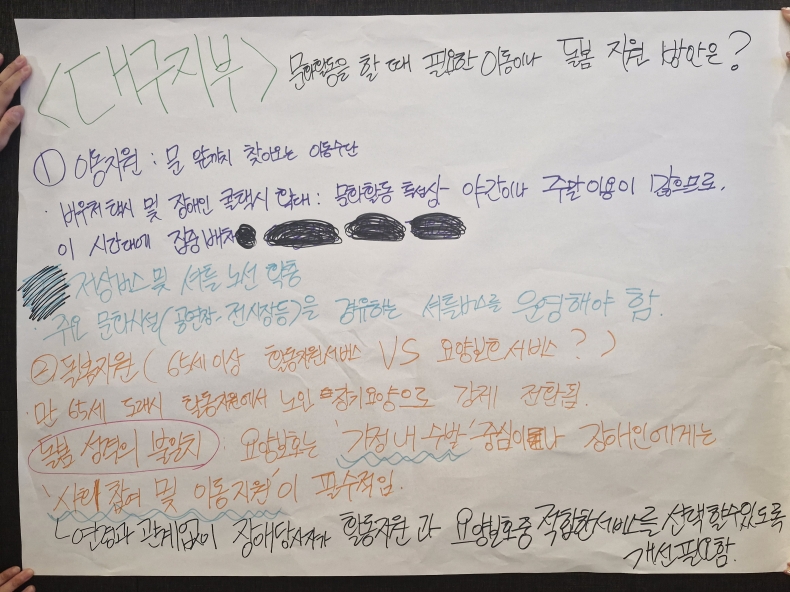 <대구지부> 문화활동을 할 때 필요한 이동이나 돌봄 지원 방안은?
① 이동지원 : 문 앞까지 찾아오는 이동수단
· 바우처 택시 및 장애인 콜택시 확대 : 문화활동 특성상 야간이나 주말 이용이 많으므로.
이 시간대에 집중 배차
저상버스 및 셔틀 노선 확충
· 주요 문화시설(공연장·전시장등)을 경유하는 셔틀버스를 운영해야 함.
② 돌봄지원 ( 65세 이상 활동지원서비스 VS 요양보호서비스 ? )
· 만 65세 도래시 활동지원에서 노인 장기요양으로 강제 전환됨.
돌봄 성격의 불일치 : 요양보호는 '가정 내 수발' 중심이나 장애인에게는
'사회 참여 및 이동지원'이 필수적임.
ㄴ연령과 관계없이 장애당사자가 활동지원과 요양보호중 적합한서비스를 선택할수있도록
개선필요함.